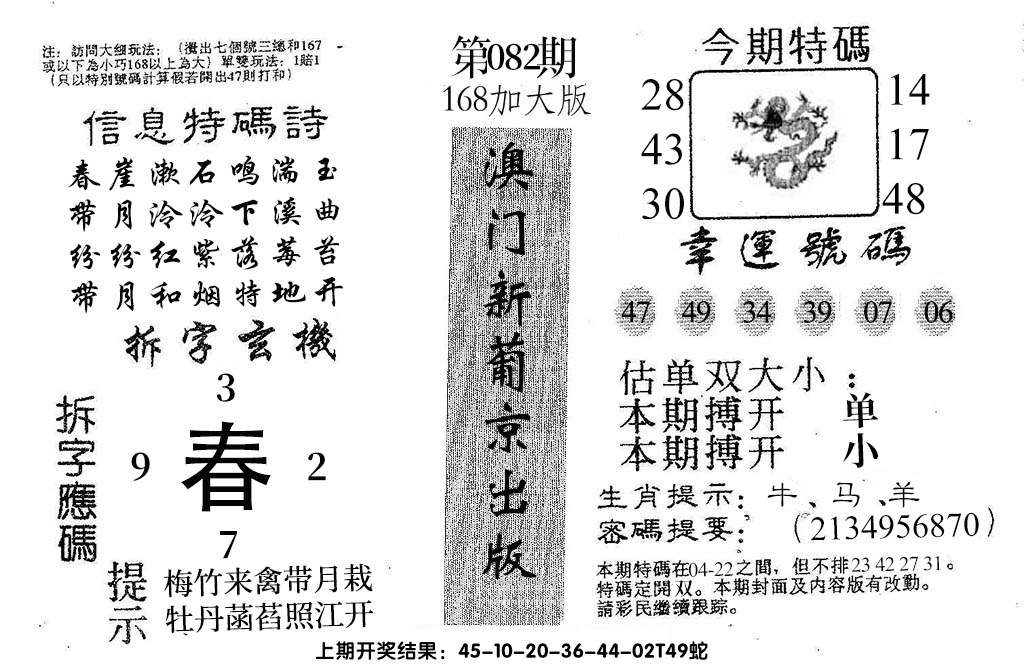 注：訪問大细玩法：（攪出七個號三總和167
或以下為小巧168以上為大）單雙玩法：1賠1
（只以特別號碼計算假若開出47則打和）
信息特碼詩
春崖漱石鸣湍玉
带月泠泠下溪曲
纷纷红紫落莓苔
带月和烟特地开
拆字玄機
拆字應碼
3
9 春 2
7
提示
梅竹来禽带月栽
牡丹菡萏照江开
第082期
168加大版
澳门新葡京出版
今期特碼
28 14
43 17
30 48
幸運號碼
47 49 34 39 07 06
估单双大小：
本期搏开 单
本期搏开 小
生肖提示：牛、马、羊
密碼提要：（2134956870）
本期特碼在04-22之間，但不排23 42 27 31。
特碼定開双。本期封面及内容版有改動。
請彩民繼續跟踪。
上期开奖结果：45-10-20-36-44-02T49蛇